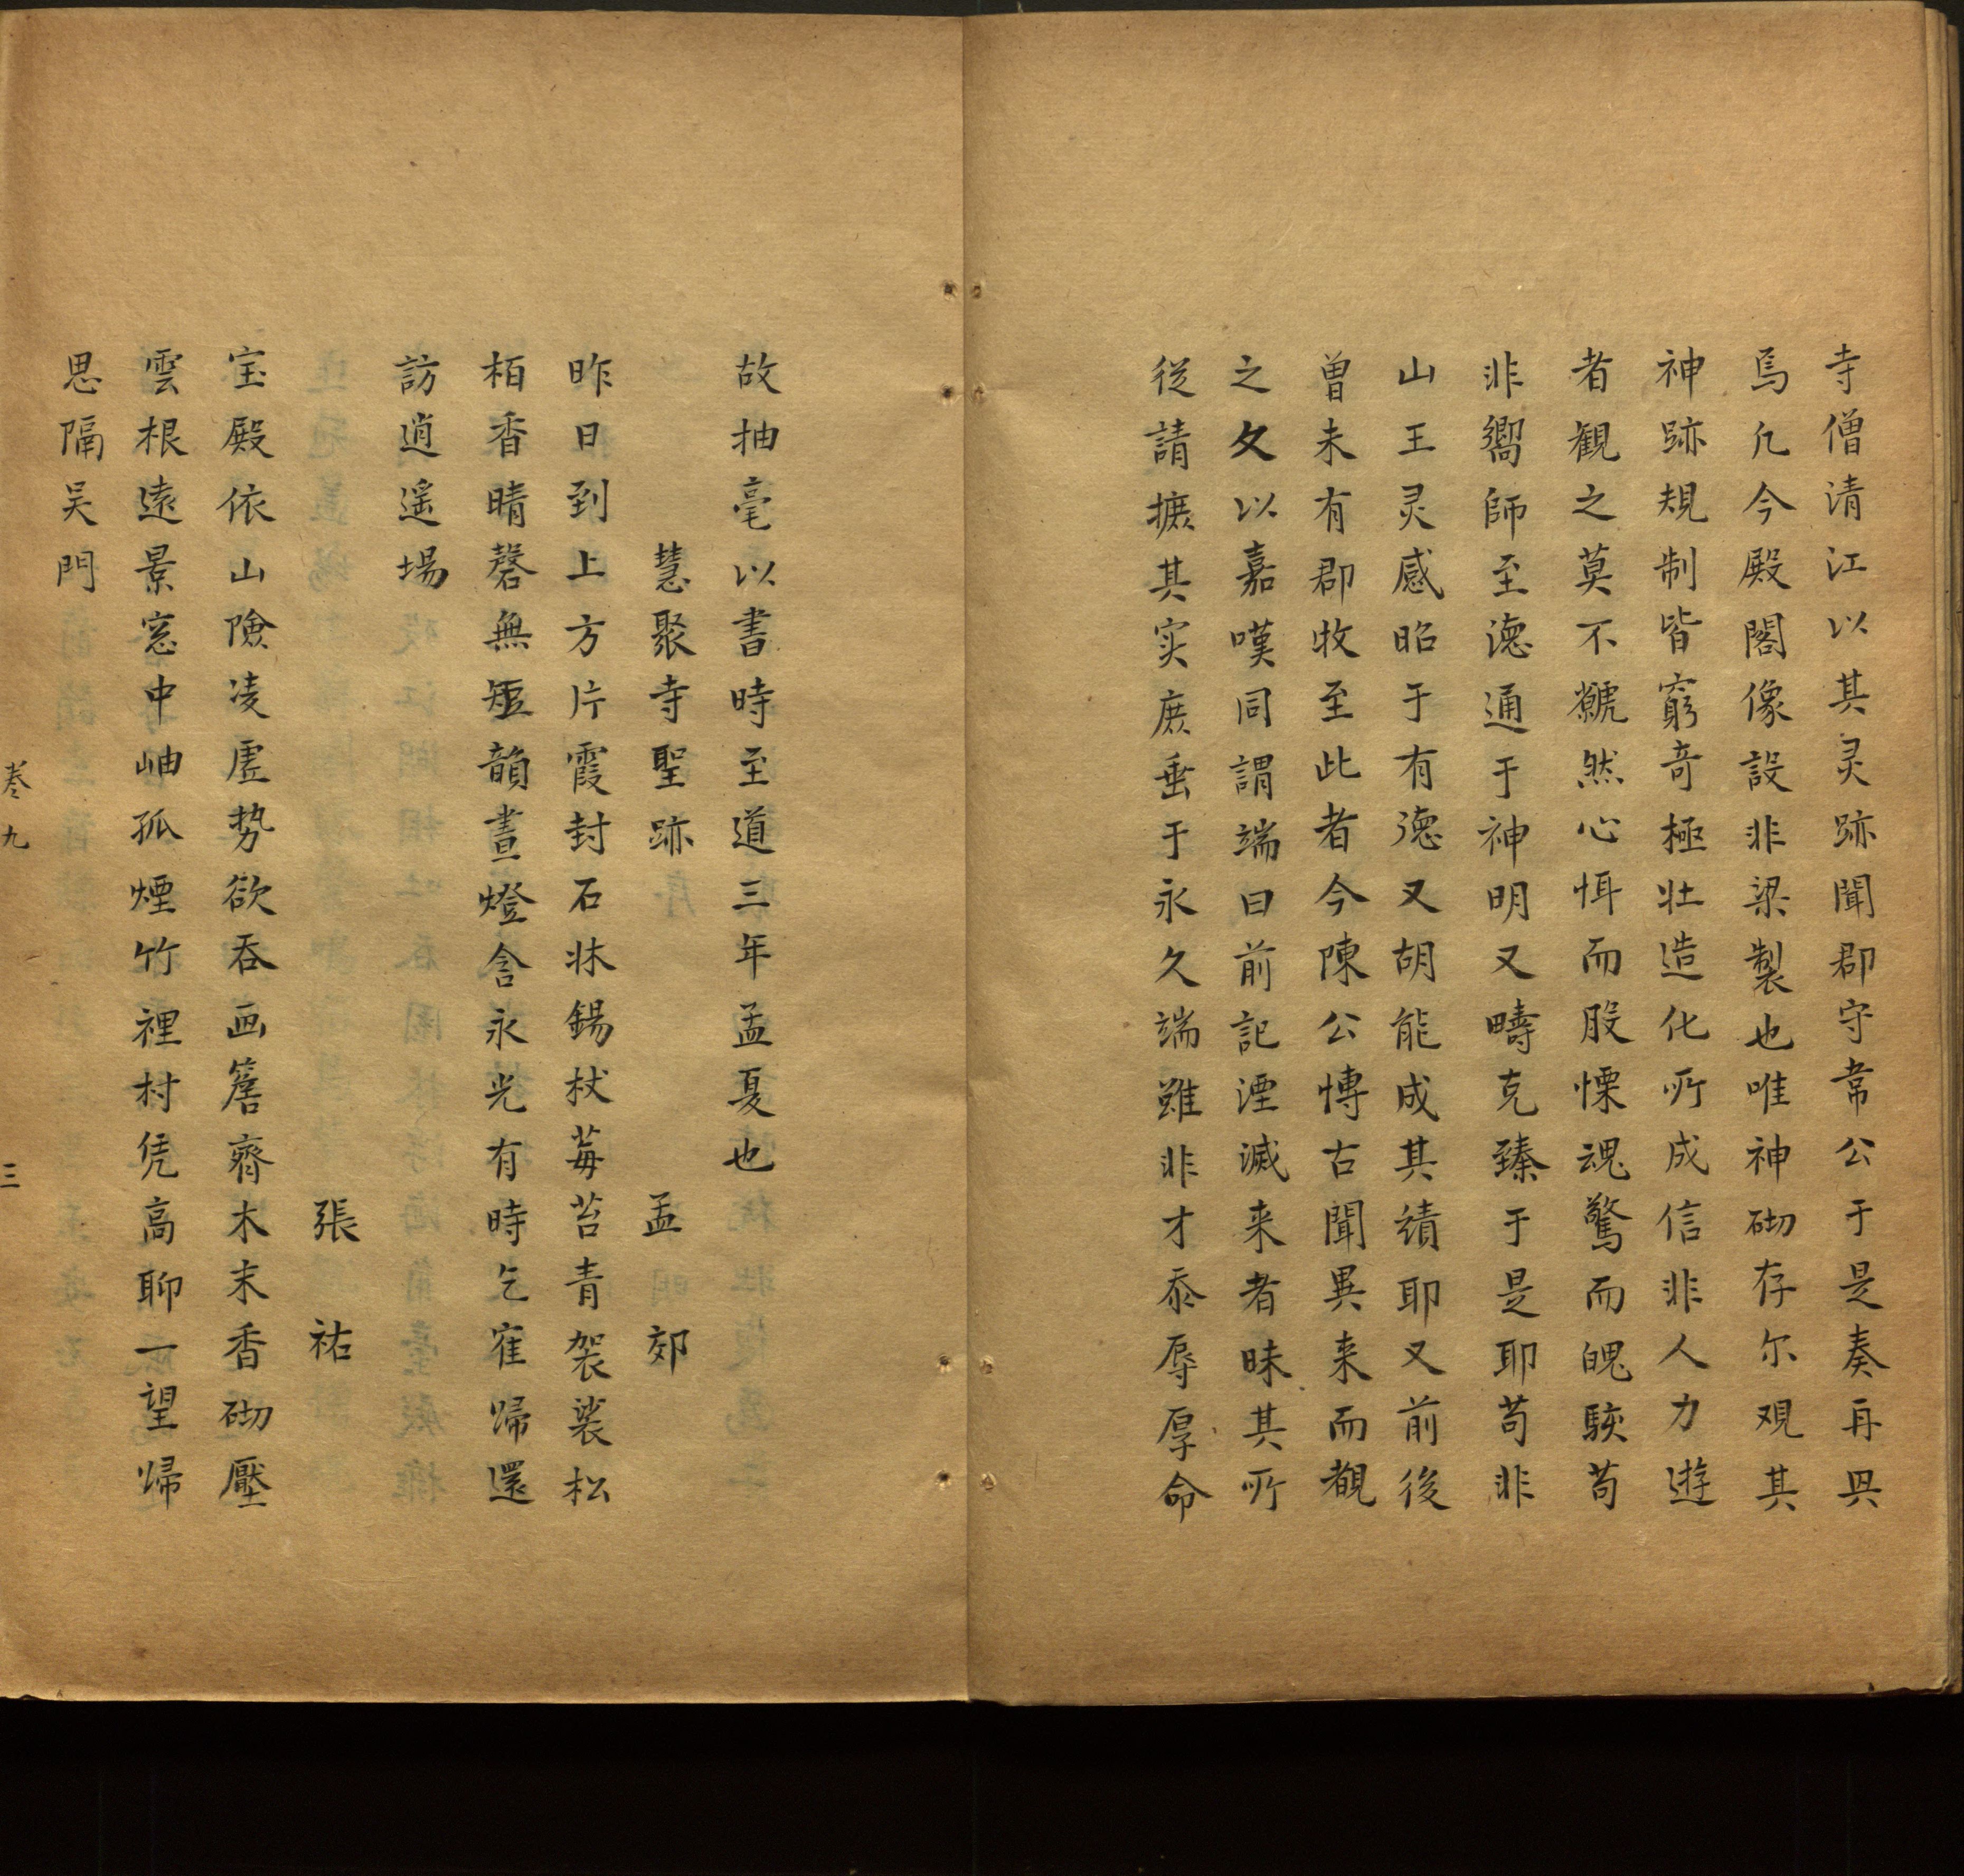 寺僧清江以其灵跡聞郡守常公于是奏再興
焉凢今殿閣像設非梁製也唯神砌存尔观其
神跡規制皆窮奇極壯造化所成信非人力遊
者観之莫不虩然心恓而股慄魂驚而魄駭苟
非嚮師至徳通于神明又疇克臻于是耶苟非
山王灵感昭于有徳又胡能成其績耶又前後
曽未有郡牧至此者今陳公博古聞異来而覩
之久以嘉嘆同謂端曰前記湮滅来者昧其所
従請摭其实庶垂于永久端雖非才忝辱厚命
故抽毫以書時至道三年孟夏也
慧聚寺聖跡 孟郊
昨日到上方片霞封石牀錫杖莓苔青袈裟松
栢香晴磬無短韻晝燈含永光有時乞寉歸還
訪逍遥場
張祐
宝殿依山險凌虚势欲吞画簷齊木末香砌壓
雲根遠景窓中岫孤煙竹裡村凭高聊一望歸
思隔吴門
卷九 三